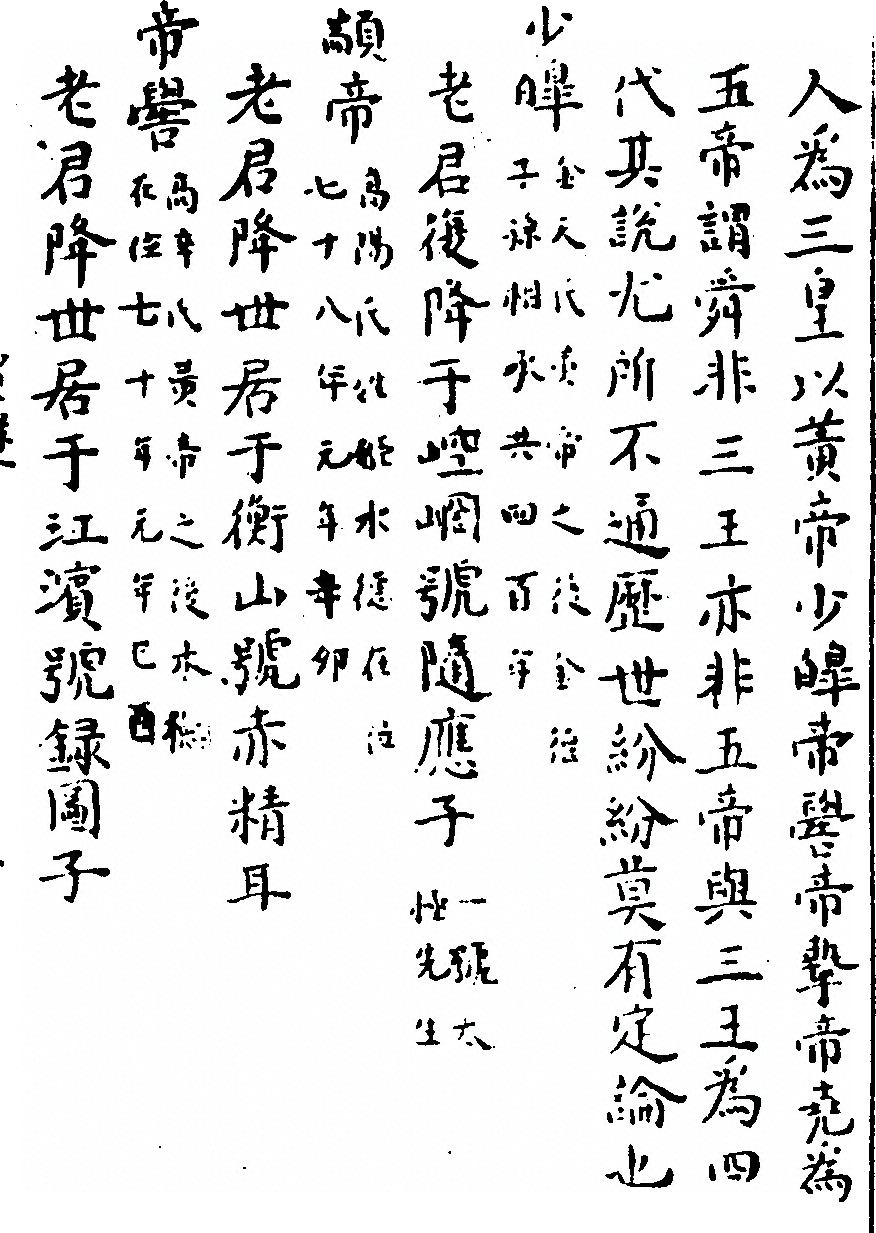 人為三皇以黃帝少皞帝嚳帝摯帝堯為
五帝謂舜非三王亦非五帝與三王為四
代其說尤所不通歷世紛紛莫有定論也
少皞
金天氏黃帝之後金德
子孫相承共四百年
老君復降于崆峒號隨應子
一號太
極先生
顓帝
高陽氏姓姬水德在位
七十八年元年辛卯
老君降世居于衡山號赤精耳
帝嚳
高辛氏黃帝之後木德
在位七十年元年己酉
老君降世居于江濱號録圖子